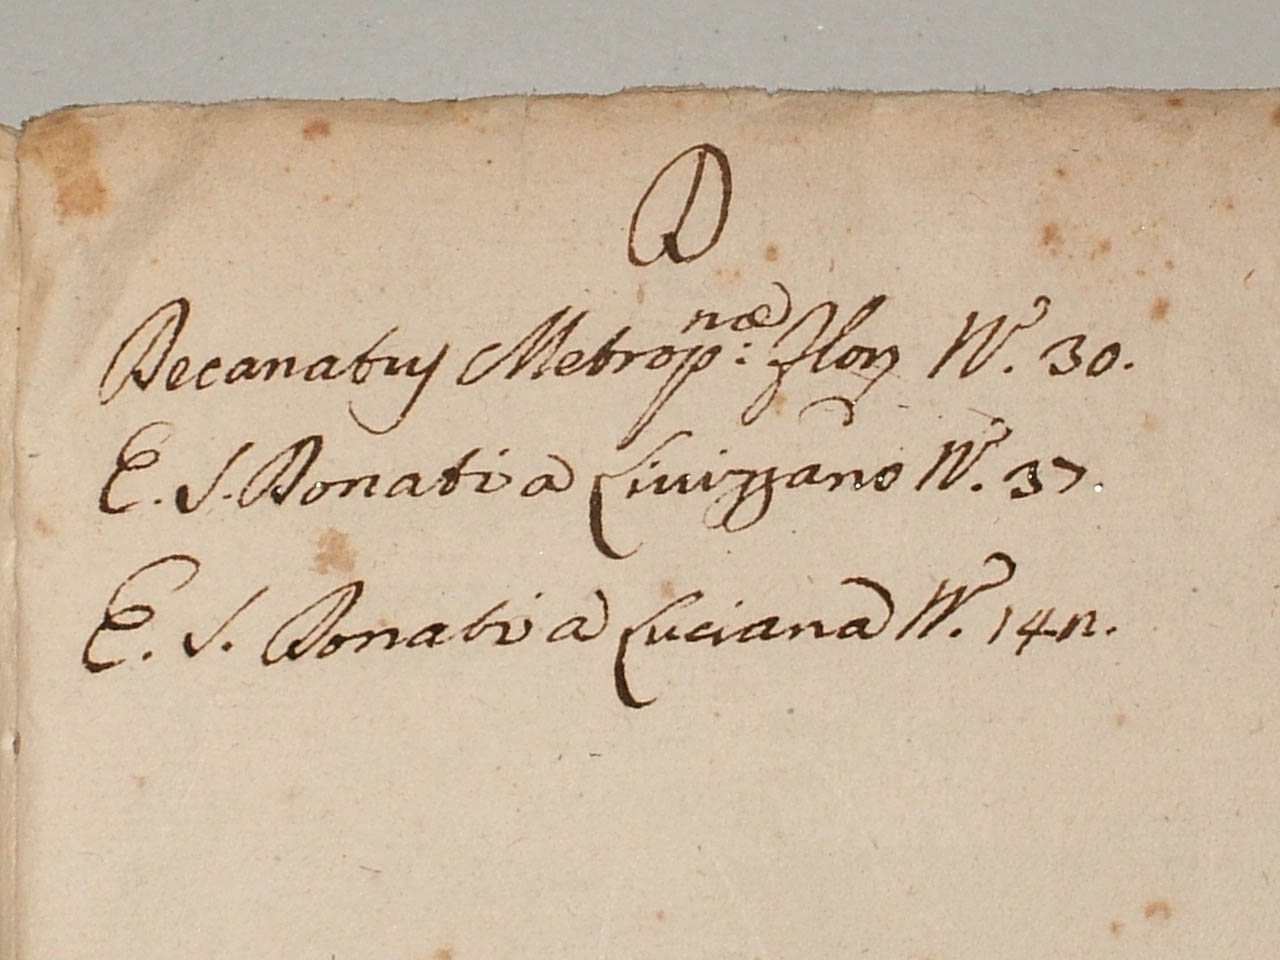 D
Decanatus Metrop:næ Flor N. 30.
E. S. Donati a Liuizzano N. 37.
E. S. Donati a Luciana N. 142.